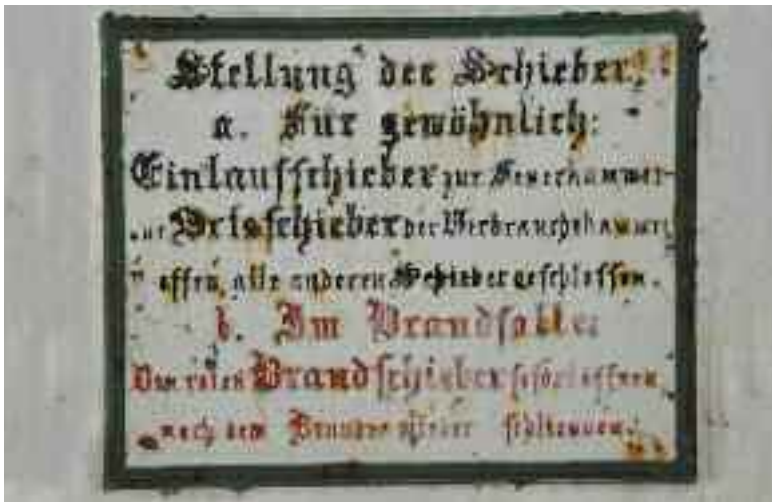 Stellung der Schieber.
a. Für gewöhnlich:
Einlaufschieber zur Feuerkammer
Ortsschieber der Verbrauchskammer
offen, alle anderen Schieber geschlossen.
b. Im Brandfalle:
Den roten Brandschieber sofort öffnen
nach dem Brande wieder schliessen.